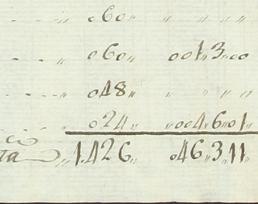 - - - „ 060„ „
- - „ 060„ 0013„00
- - - „ 048„ „ „
„ 024„ „004„6„01„
ta „1.426„ 046„3„11„